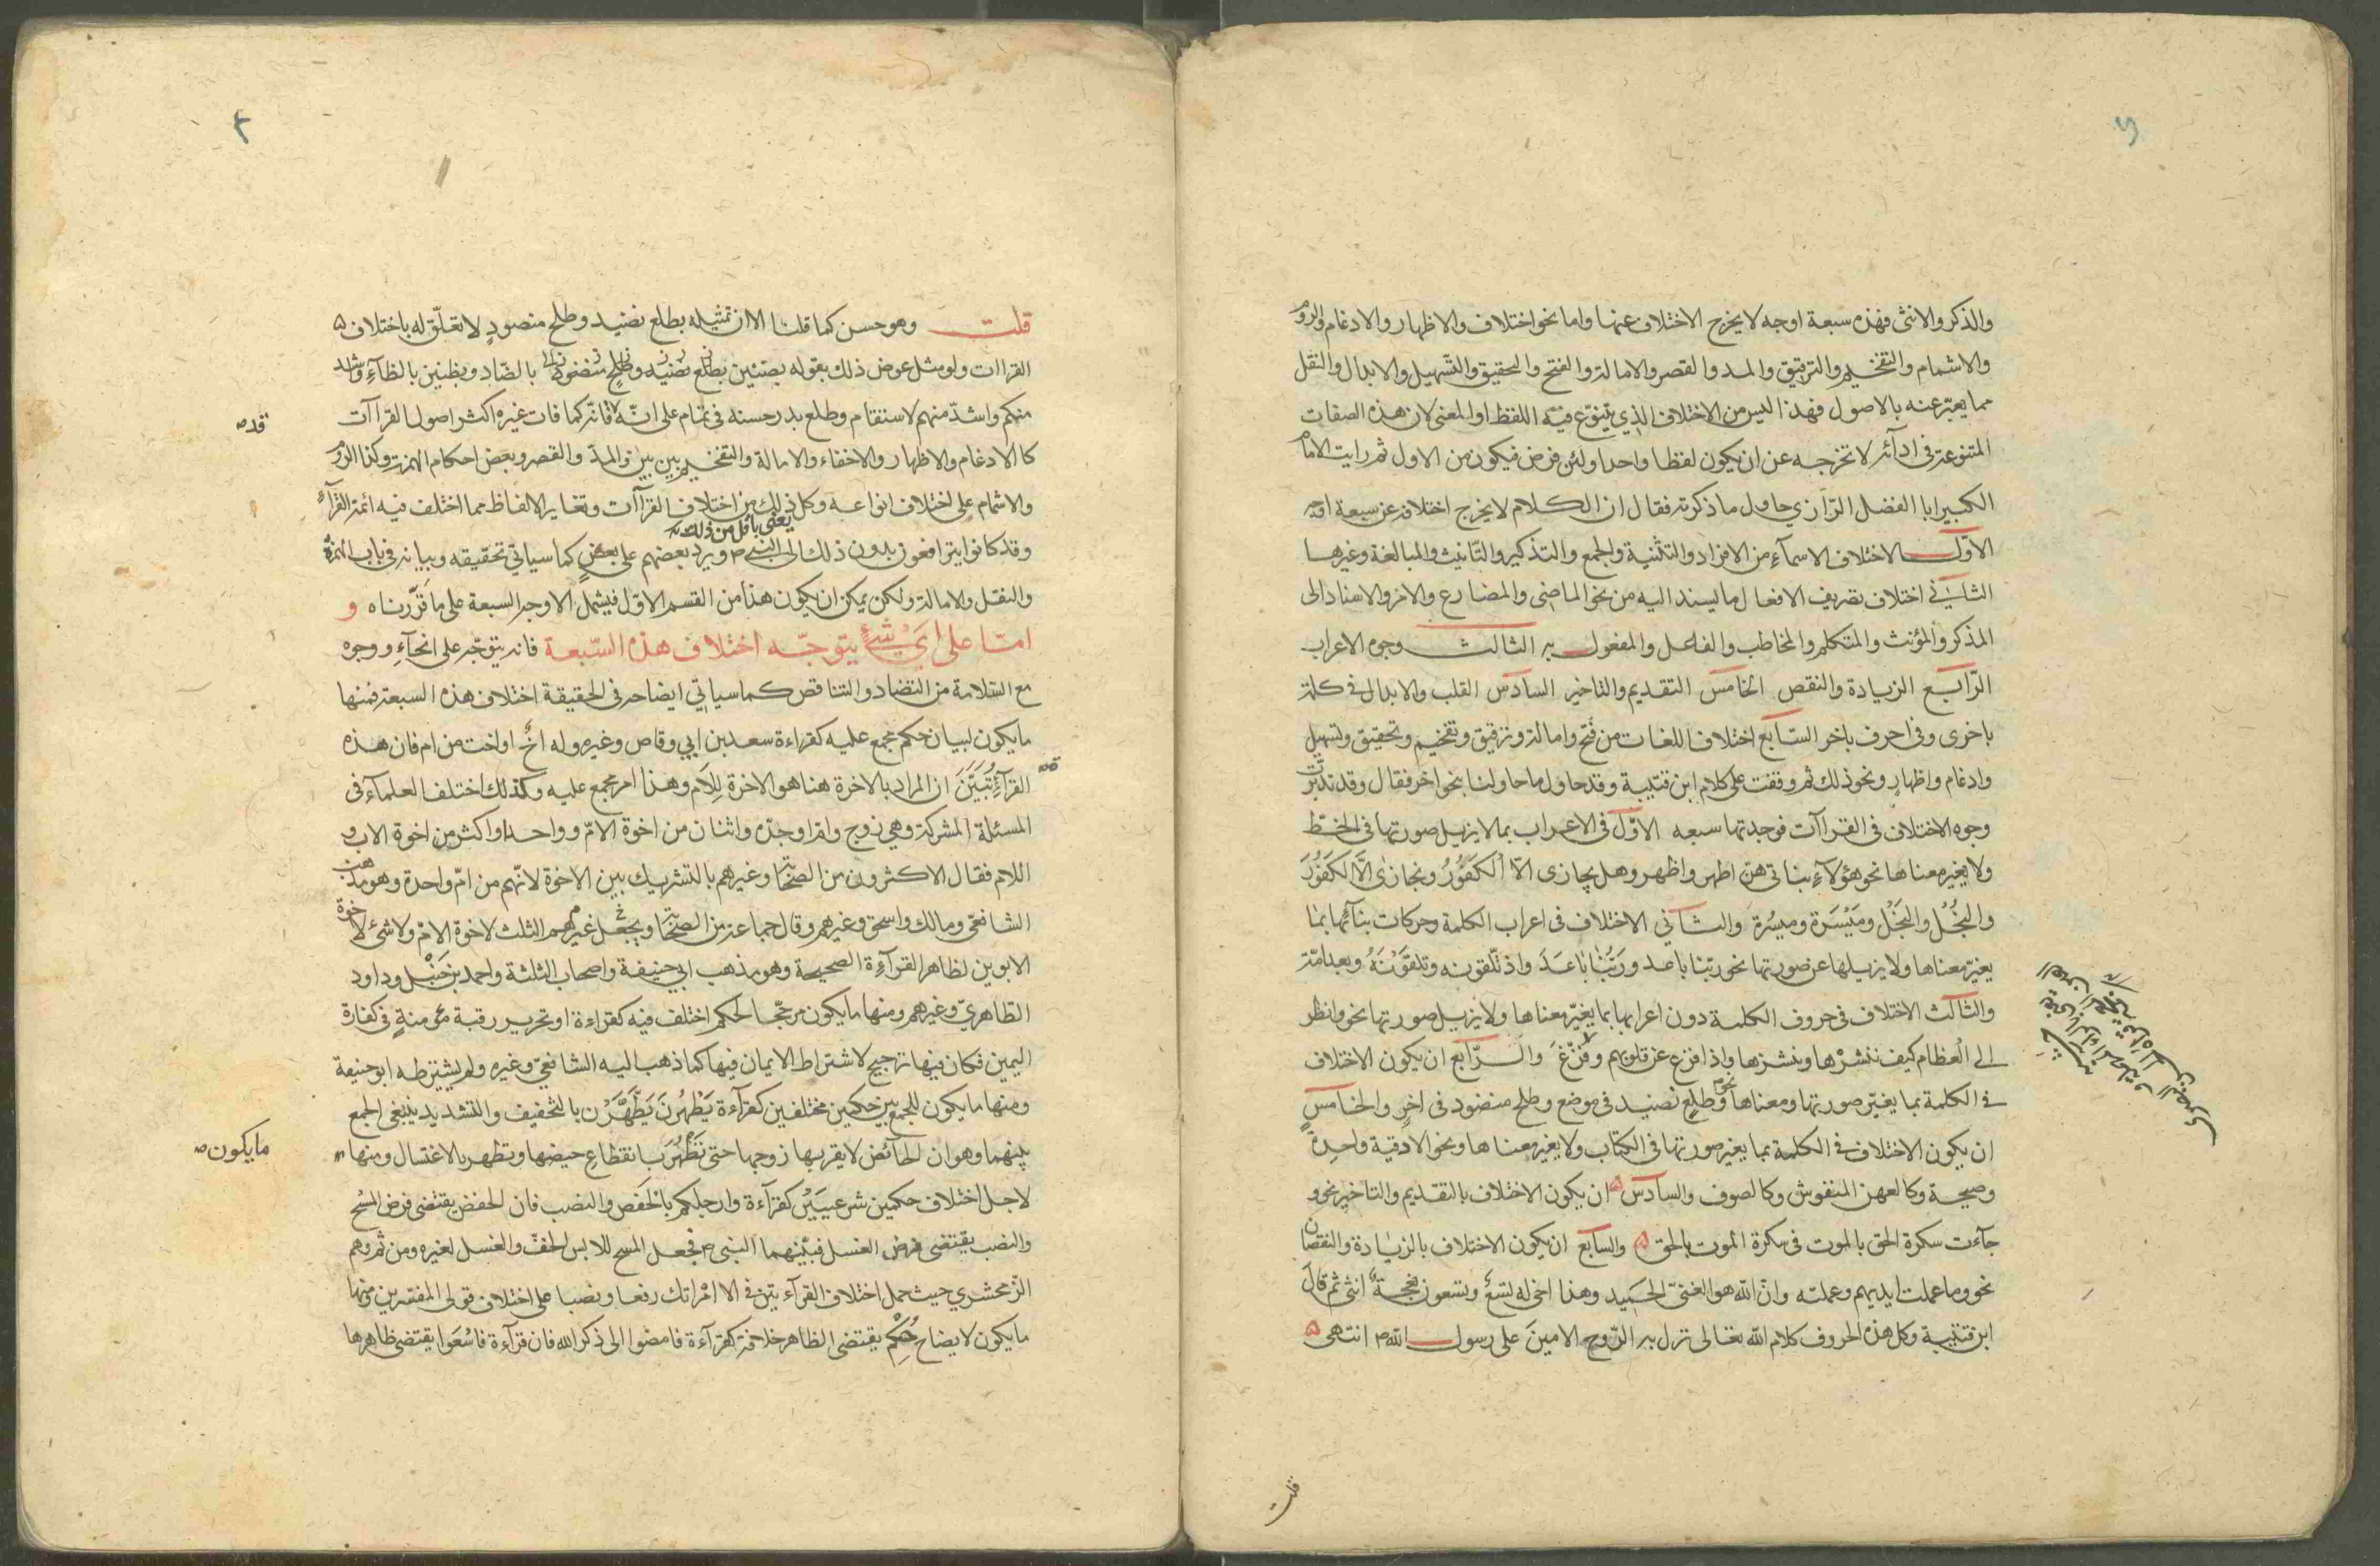 والذكر والانثى فهذه سبعة اوجه لا يخرج الاختلاف عنها واما نحو اختلاف والاظهار والادغام والروم
والاشمام والتفخيم والترقيق والمد والقصر والامالة والفتح والتحقيق والتسهيل والابدال والنقل
مما يعبّر عنه بالاصول فهذا ليس من الاختلاف الذي يتنوّع فيه اللفظ او المعنى لان هذه الصفات
المتنوعة في ادآئه لا تخرجه عن ان يكون لفظا واحدا ولئن فرض فيكون من الاول ثم رايت الامام
الكبير ابا الفضل الرّازي حاول ما ذكرته فقال ان الكلام لا يخرج اختلافه عن سبعة اوجه
الاوّل الاختلاف الاسمآء من الافراد والتثنية والجمع والتذكير والتانيث والمبالغة وغيرها
الثاني اختلاف تصريف الافعال ما يسند اليه من نحو الماضى والمضارع والامر والاسناد الى
المذكر والمؤنث والمتكلم والمخاطب والفاعل والمفعول به الثالث وجوه الاعراب
الرّابع الزيادة والنقص الخامس التقديم والتاخير السادس القلب والابدال في كلمة
باخرى وفي احرف باخر السّابع اختلاف اللغات من فتح وامالة وترقيق وتفخيم وتحقيق وتسهيل
وادغام واظهار ونحو ذلك ثم وقفت على كلام ابن قتيبة وقد حاول ما حاولنا بنحو اخر فقال وقد تدبّرت
وجوه الاختلاف في القراآت فوجدتها سبعه الاوّل في الاعراب بما لا يزيل صورتها في الخطّ
ولا يغيّر معناها نحو هؤلآء بناتي هنّ اطهر واظهر وهل يجازى الّا الكَفُورُ ونجازى الّا الكفُورَ
والبُخُل والبَخَل ومَيْسَرة وميسُرة والثاني الاختلاف في اعراب الكلمة وحركات بنآئها بما
يغيّر معناها ولا يزيلها عن صورتها نحو ربّنا باعد وربُّنا باعَدَ واذ تلّقونه وتلقَّوْنَهُ وبعد امّة
والثالث الاختلاف في حروف الكلمة دون اعرابها بما يغيّر معناها ولا يزيل صورتها نحو وانظر
الى العظام كيف ننشرْها وننشزها واذا فزع عن قلوبهم وفُزّغَ والرّابع ان يكون الاختلاف
في الكلمة بما يغيّر صورتها ومعناها نحو وطلع نضيد في موضع وطلح منضود في اخر والخامس
ان يكون الاختلاف في الكلمة بما يغير صورتها في الكتاب ولا يغير معناها ونحو الا دقية واحدة
وصيحة وكالعهن المنفوش وكالصوف والسادس ان يكون الاختلاف بالتقديم والتاخير نحو و
جآءت سكرة الحق بالموت في سكرة الموت بالحق والسابع ان يكون الاختلاف بالزيادة والنقصان
نحو وما عملت ايديهم وعملته وانّ الله هو الغنيّ الحميد وهذا اخى له تسع وتسعون نعجة انثى ثم قال
ابن قتيبة وكل هذه الحروف كلام الله تعالى نزل به الرّوح الامين على رسول الله انتهى
قلت
قلت وهو حسن كما قلنا الا ان تمثيله بطلع نضيد وطلح منضود لا تعلّق له باختلاف
القراات ولو مثل عوض ذلك بقوله بضنين بالضّاد وبظنين بالظآء واشد
منكم واشدّ منهم لاستقام وطلع بدر حسنه في تمام على انّه قد فاته كما فات غيره اكثر اصول القراآت
كالادغام والاظهار والاخفاء والامالة والتفخيم وبين بين والمدّ والقصر وبعض احكام الهمزة وكذا الروم
والاشمام على اختلاف انواعه وكل ذلك من اختلاف القراآت وتغاير الالفاظ مما اختلف فيه ائمة القرآء
يعنى باقل من ذلك
وقد كانوا يترافعون بدون ذلك الى النبي ويرد بعضهم على بعض كما سياتي تحقيقه وبيانه في باب الهمزة
والنقل والامالة ولكن يمكن ان يكون هذا من القسم الاوّل فيشمل الاوجه السبعة على ما قرّرناه و
امّا على ايّ شئ يتوجّه اختلاف هذه السّبعة فانه يتوجّه على انحآء ووجوه
مع السّلامة من التضاد والتناقص كما سياتي ايضاحه في الحقيقة اختلاف هذه السبعة فمنها
ما يكون لبيان حكم مجمع عليه كقراءة سعد بن ابي وقاص وغيره وله اخ او اخت من ام فان هذه
القرآءة تبيّن ان المراد بالاخرة هنا هو الاخرة للام وهذا امر مجمع عليه وكذلك اختلف العلمآء في
المسئلة المشركة وهي زوج وام او جدّه واثنان من اخوة الامّ وواحد او اكثر من اخوة الاب و
اللام فقال الاكثرون من الصحابة وغيرهم بالتشريك بين الاخوة لانّهم من امّ واحدة وهو مذهب
الشافعيّ ومالك واسحق وغيرهم وقال جماعة من الصحابة ويجعل غيرهم الثلث لاخوة الام ولا شئ لاخوة
الابوين لظاهر القرآءة الصحيحة وهو مذهب ابي حنيفة واصحاب الثلثة واحمد بن حَنْبل وداود
الظاهريّ وغيرهم ومنها ما يكون مرجّحا لحكم اختلف فيه كقراءة او تحرير رقبة مؤمنة في كفارة
اليمين فكان فيها ترجيح لاشتراط الايمان فيها كما ذهب اليه الشافعيّ وغيره ولم يشترطه ابو حنيفة
ومنها ما يكون للجمع بين حكمين مختلفين كقرآءة يَطْهُرنَ يَطَّهَّرْن بالتخفيف والتشديد ينبغى الجمع
بينهما وهو ان الحائض لا يقربها زوجها حتى تَطْهُرَ بانقطاع حيضها وتطهر بالاغتسال ومنها
ما يكون
لاجل اختلاف حكمين شرعيَيْن كقرآءة وارجلكم بالخفض والنصب فان الخفض يقتضى فرض المسْح
والنصب يقتضى فرض الغسل فبيّنهما النبي فجعل المسح للابس الخفّ والغسل لغيره ومن ثم وهم
الزّمخشري حيث حمل اختلاف القرآءتين في الا امْراتك رفعا ونصبا على اختلاف قولى المفسّرين ومنها
ما يكون لايضاح حُكْم يقتضى الظاهر خلافه كقرآءة فامضوا الى ذكر الله فان قرآءة فاسْعَوا يقتضى ظاهرها